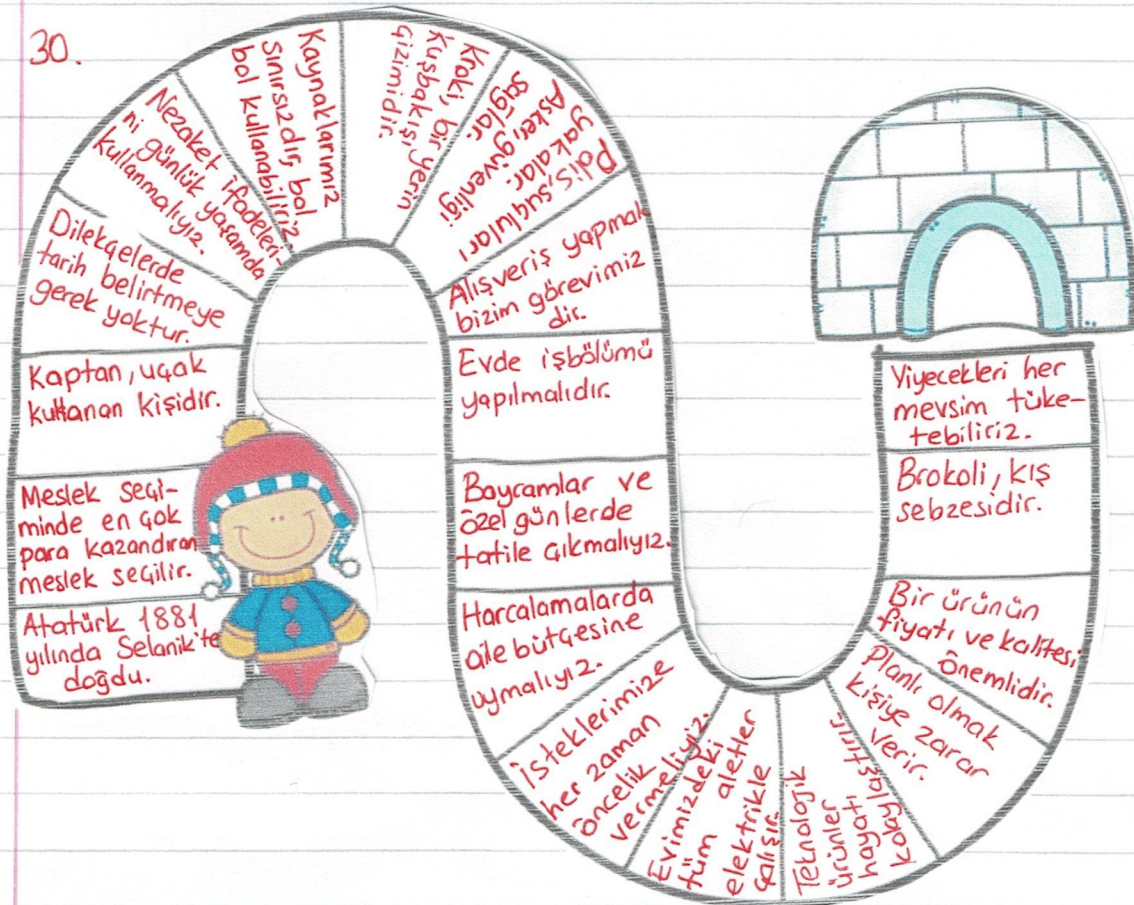 30.
Atatürk 1881
yılında Selanik'te
doğdu.
Meslek seçi-
minde en çok
para kazandıran
meslek seçilir.
Kaptan, uçak
kullanan kişidir.
Dilekçelerde
tarih belirtmeye
gerek yoktur.
Nezaket ifadeleri-
ni günlük yaşamda
kullanmalıyız.
Kaynaklarımız
sınırsızdır, bol
bol kullanabiliriz.
Kroki, bir yerin
kuşbakışı
çizimidir.
Polis, suçluları
yakalar.
Asker, güvenliği
sağlar.
Alışveriş yapmak
bizim görevimiz
dir.
Evde işbölümü
yapılmalıdır.
Bayramlar ve
özel günlerde
tatile çıkmalıyız.
Harcalamalarda
aile bütçesine
uymalıyız.
İsteklerimize
her zaman
öncelik
vermeliyiz.
Evimizdeki
tüm aletler
elektrikle
çalışır.
Teknolojik
ürünler
hayatı
kolaylaştırır.
Planlı olmak
kişiye zarar
verir.
Bir ürünün
fiyatı ve kalitesi
önemlidir.
Brokoli, kış
sebzesidir.
Yiyecekleri her
mevsim tüke-
tebiliriz.